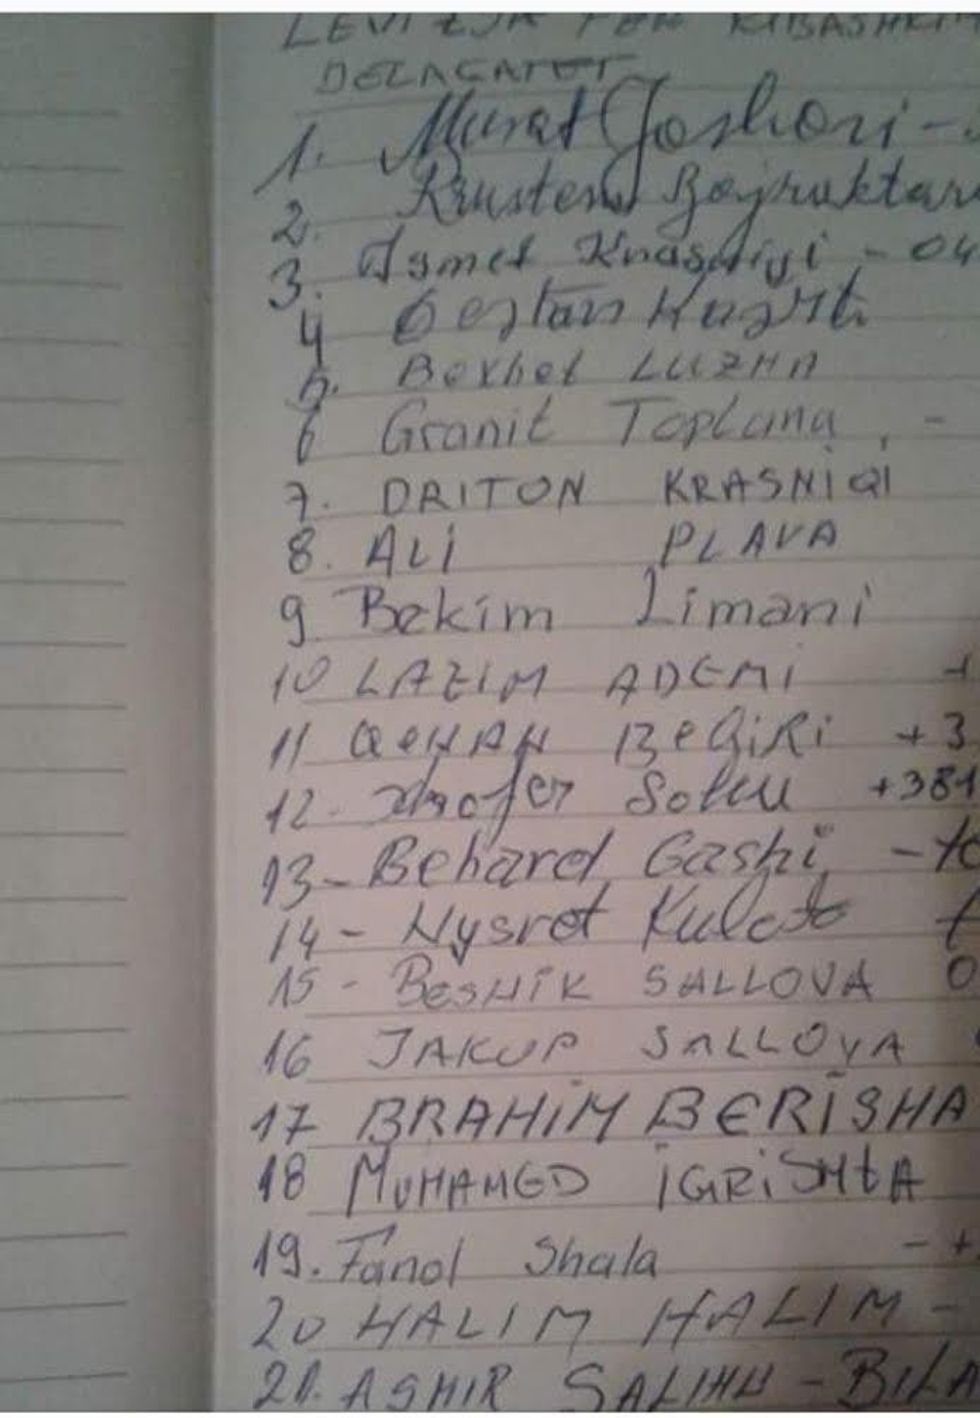 LEVIZJA PËR RIBASHKIM
DELAGATET
1. Murat Jashari -
2. Krusten Bajraktar
3. Ismet Krasniqi - 04
4
5. Bexhet LUZHA
6 Granit Toplana, -
7. DRITON KRASNIQI
8. ALi PLAVA
9 Bekim Limani
10 LAZIM ADEMI +
11 QeHAH BeQiRi +3
12. Xhafer Sokli +381
13 - Beharel Gashi, -
14 - Nysret
15 - BesHiK SALLOVA 0
16 JAKUP SALLOVA
17 BRAHiM BERiSHA
18 MUHAMED iGRiSHtA
19. Fanol Shala - +
20 HALIM HALIM -
21. ASMIR SALIHU - BILA